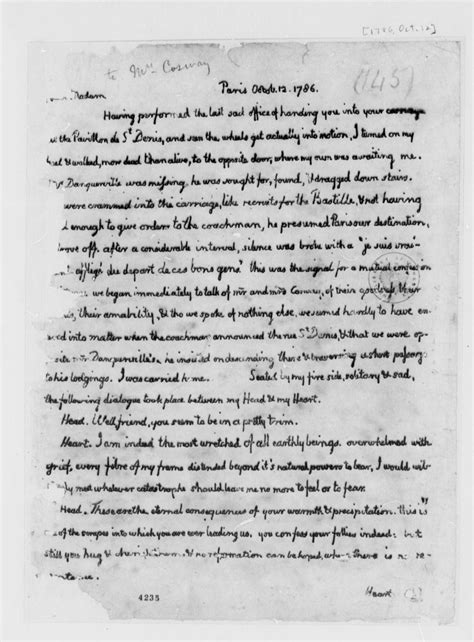 [1786, Oct. 12]
to Mrs Cosway
(145)
Madam
Paris Octob. 12. 1786.
Having performed the last sad office of handing you into your carriage
at the Pavillon de St Denis, and seen the wheels get actually into motion, I turned on my
heel & walked, more dead than alive, to the opposite door, where my own was awaiting me.
Danquerville was missing, he was sought for, found, & dragged down stairs.
were crammed into the carriage, like recruits for the Bastille, & not having
enough to give orders to the coachman, he presumed Paris our destination,
drove off. after a considerable interval, silence was broke with a "je suis vrai-
affligé du depart de ces bons gens" this was the signal for a mutual confession
we began immediately to talk of mr and mrs Cosway, of their goodness, their
their amability, & tho we spoke of nothing else, we seemed hardly to have en-
tered into matter when the coachman announced the rue St Denis, & that we were op-
posite mr Danquerville's. he insisted on descending there & traversing a short passage
to his lodgings. I was carried home. Seated by my fire side, solitary & sad,
the following dialogue took place between my Head & my Heart.
Head. Well, friend, you seem to be in a pretty trim.
Heart. I am indeed the most wretched of all earthly beings. overwhelmed with
grief, every fibre of my frame distended beyond it's natural powers to bear, I would wil-
meet whatever catastrophe should leave me no more to feel or to fear.
Head. These are the eternal consequences of your warmth & precipitation. this is
of the scrapes into which you are ever leading us. you confess your follies indeed: but
still you hug & cherish them, & no reformation can be hoped, where there is no re-
pentance.
4235
Heart